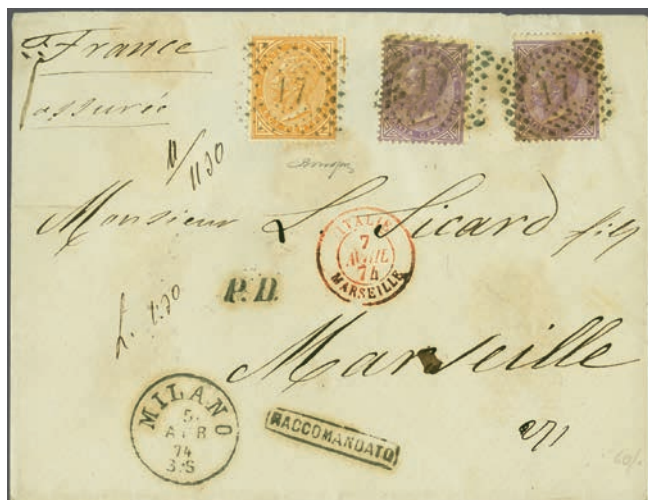 France
assurée
17
17
17
11/1130
Monsieur L. Sicard fils
ITALIE
7
AVRIL
74
MARSEILLE
P.D.
L. 1:30
Marseille
MILANO
5
APR
74
3 S
RACCOMANDATO
271
60/-